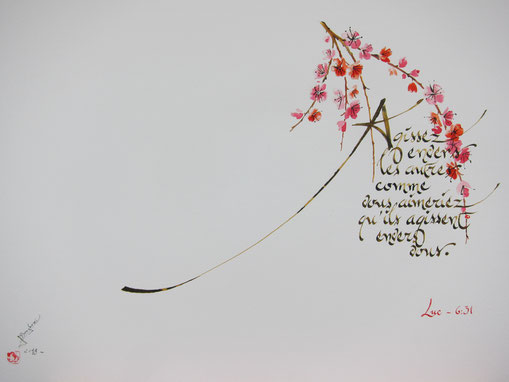 Agissez
envers
les autres
comme
vous aimeriez
qu'ils agissent
envers
vous.
Luc - 6:31